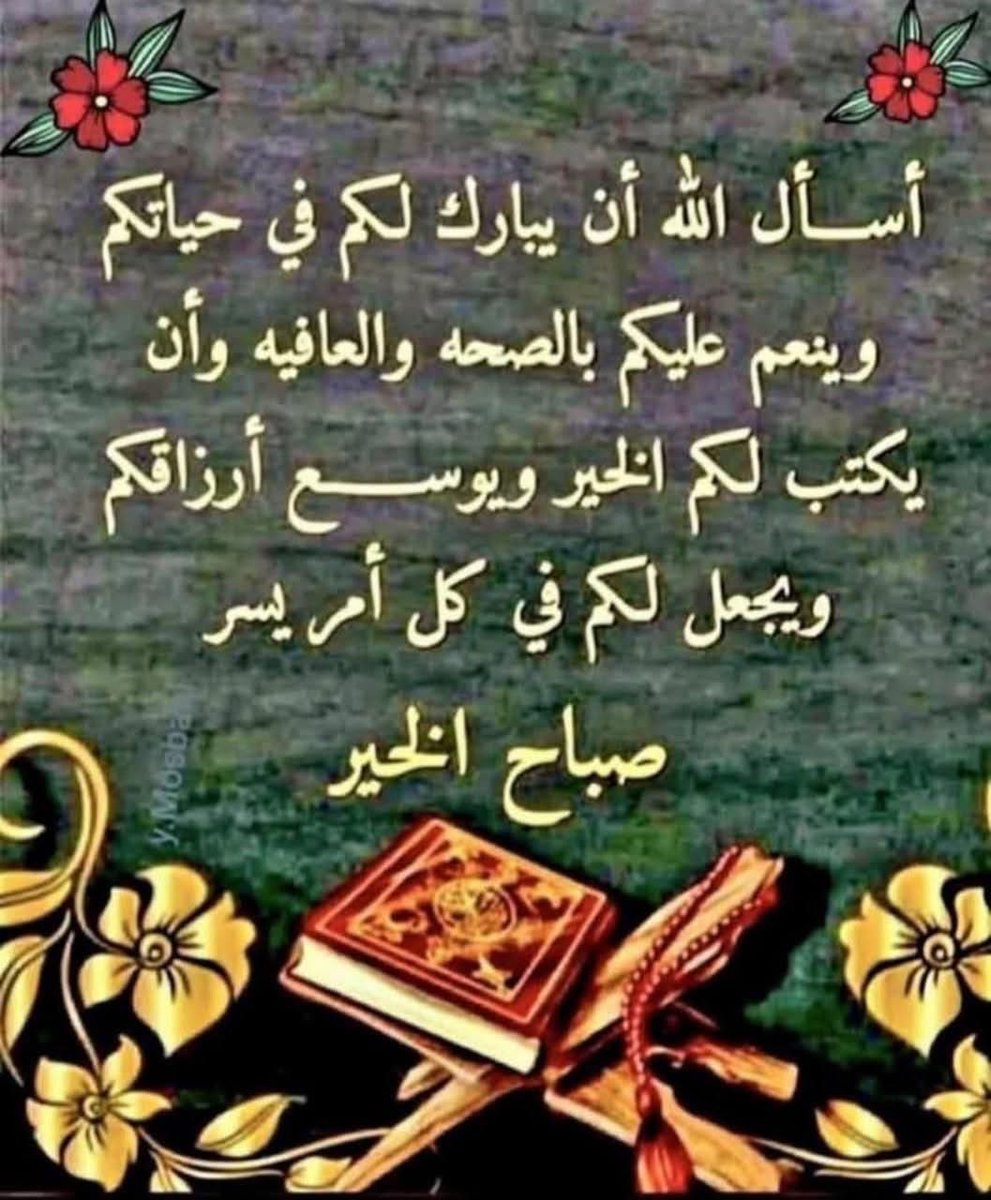 أسـأل الله أن يبارك لكم في حياتكم
وينعم عليكم بالصحه والعافيه وأن
يكتب لكم الخير ويوسـع أرزاقكم
ويجعل لكم في كل أمر يسر
صباح الخير